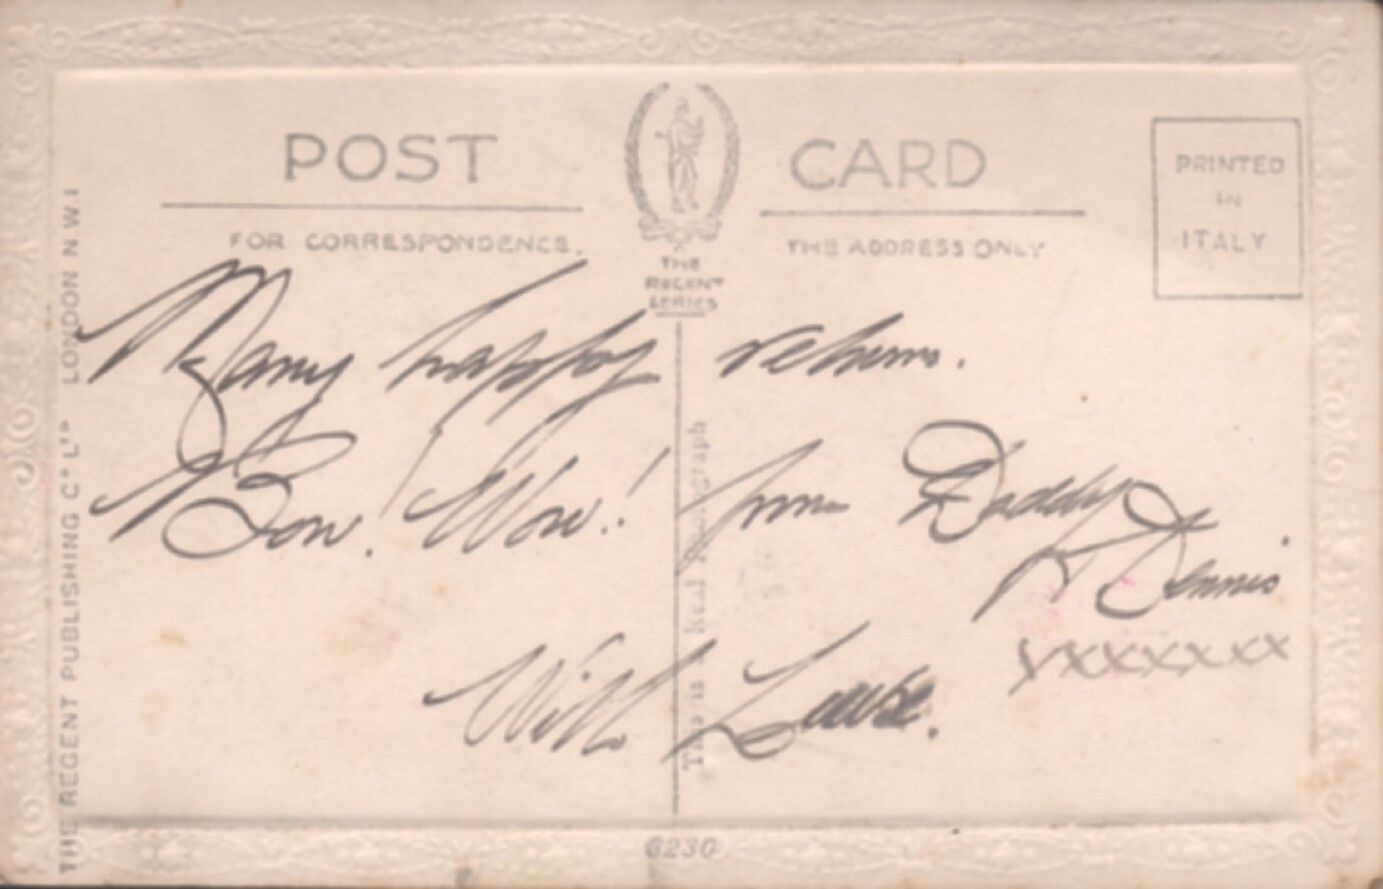 POST CARD
FOR CORRESPONDENCE.
THE ADDRESS ONLY
THE
REGENT
SERIES
PRINTED
IN
ITALY
Many happy returns.
Bow. Wow! from Daddy
& Dennis
xxxxxxx
With Love.
THE REGENT PUBLISHING Co LTD LONDON N W.1
This is a Real Photograph
6230